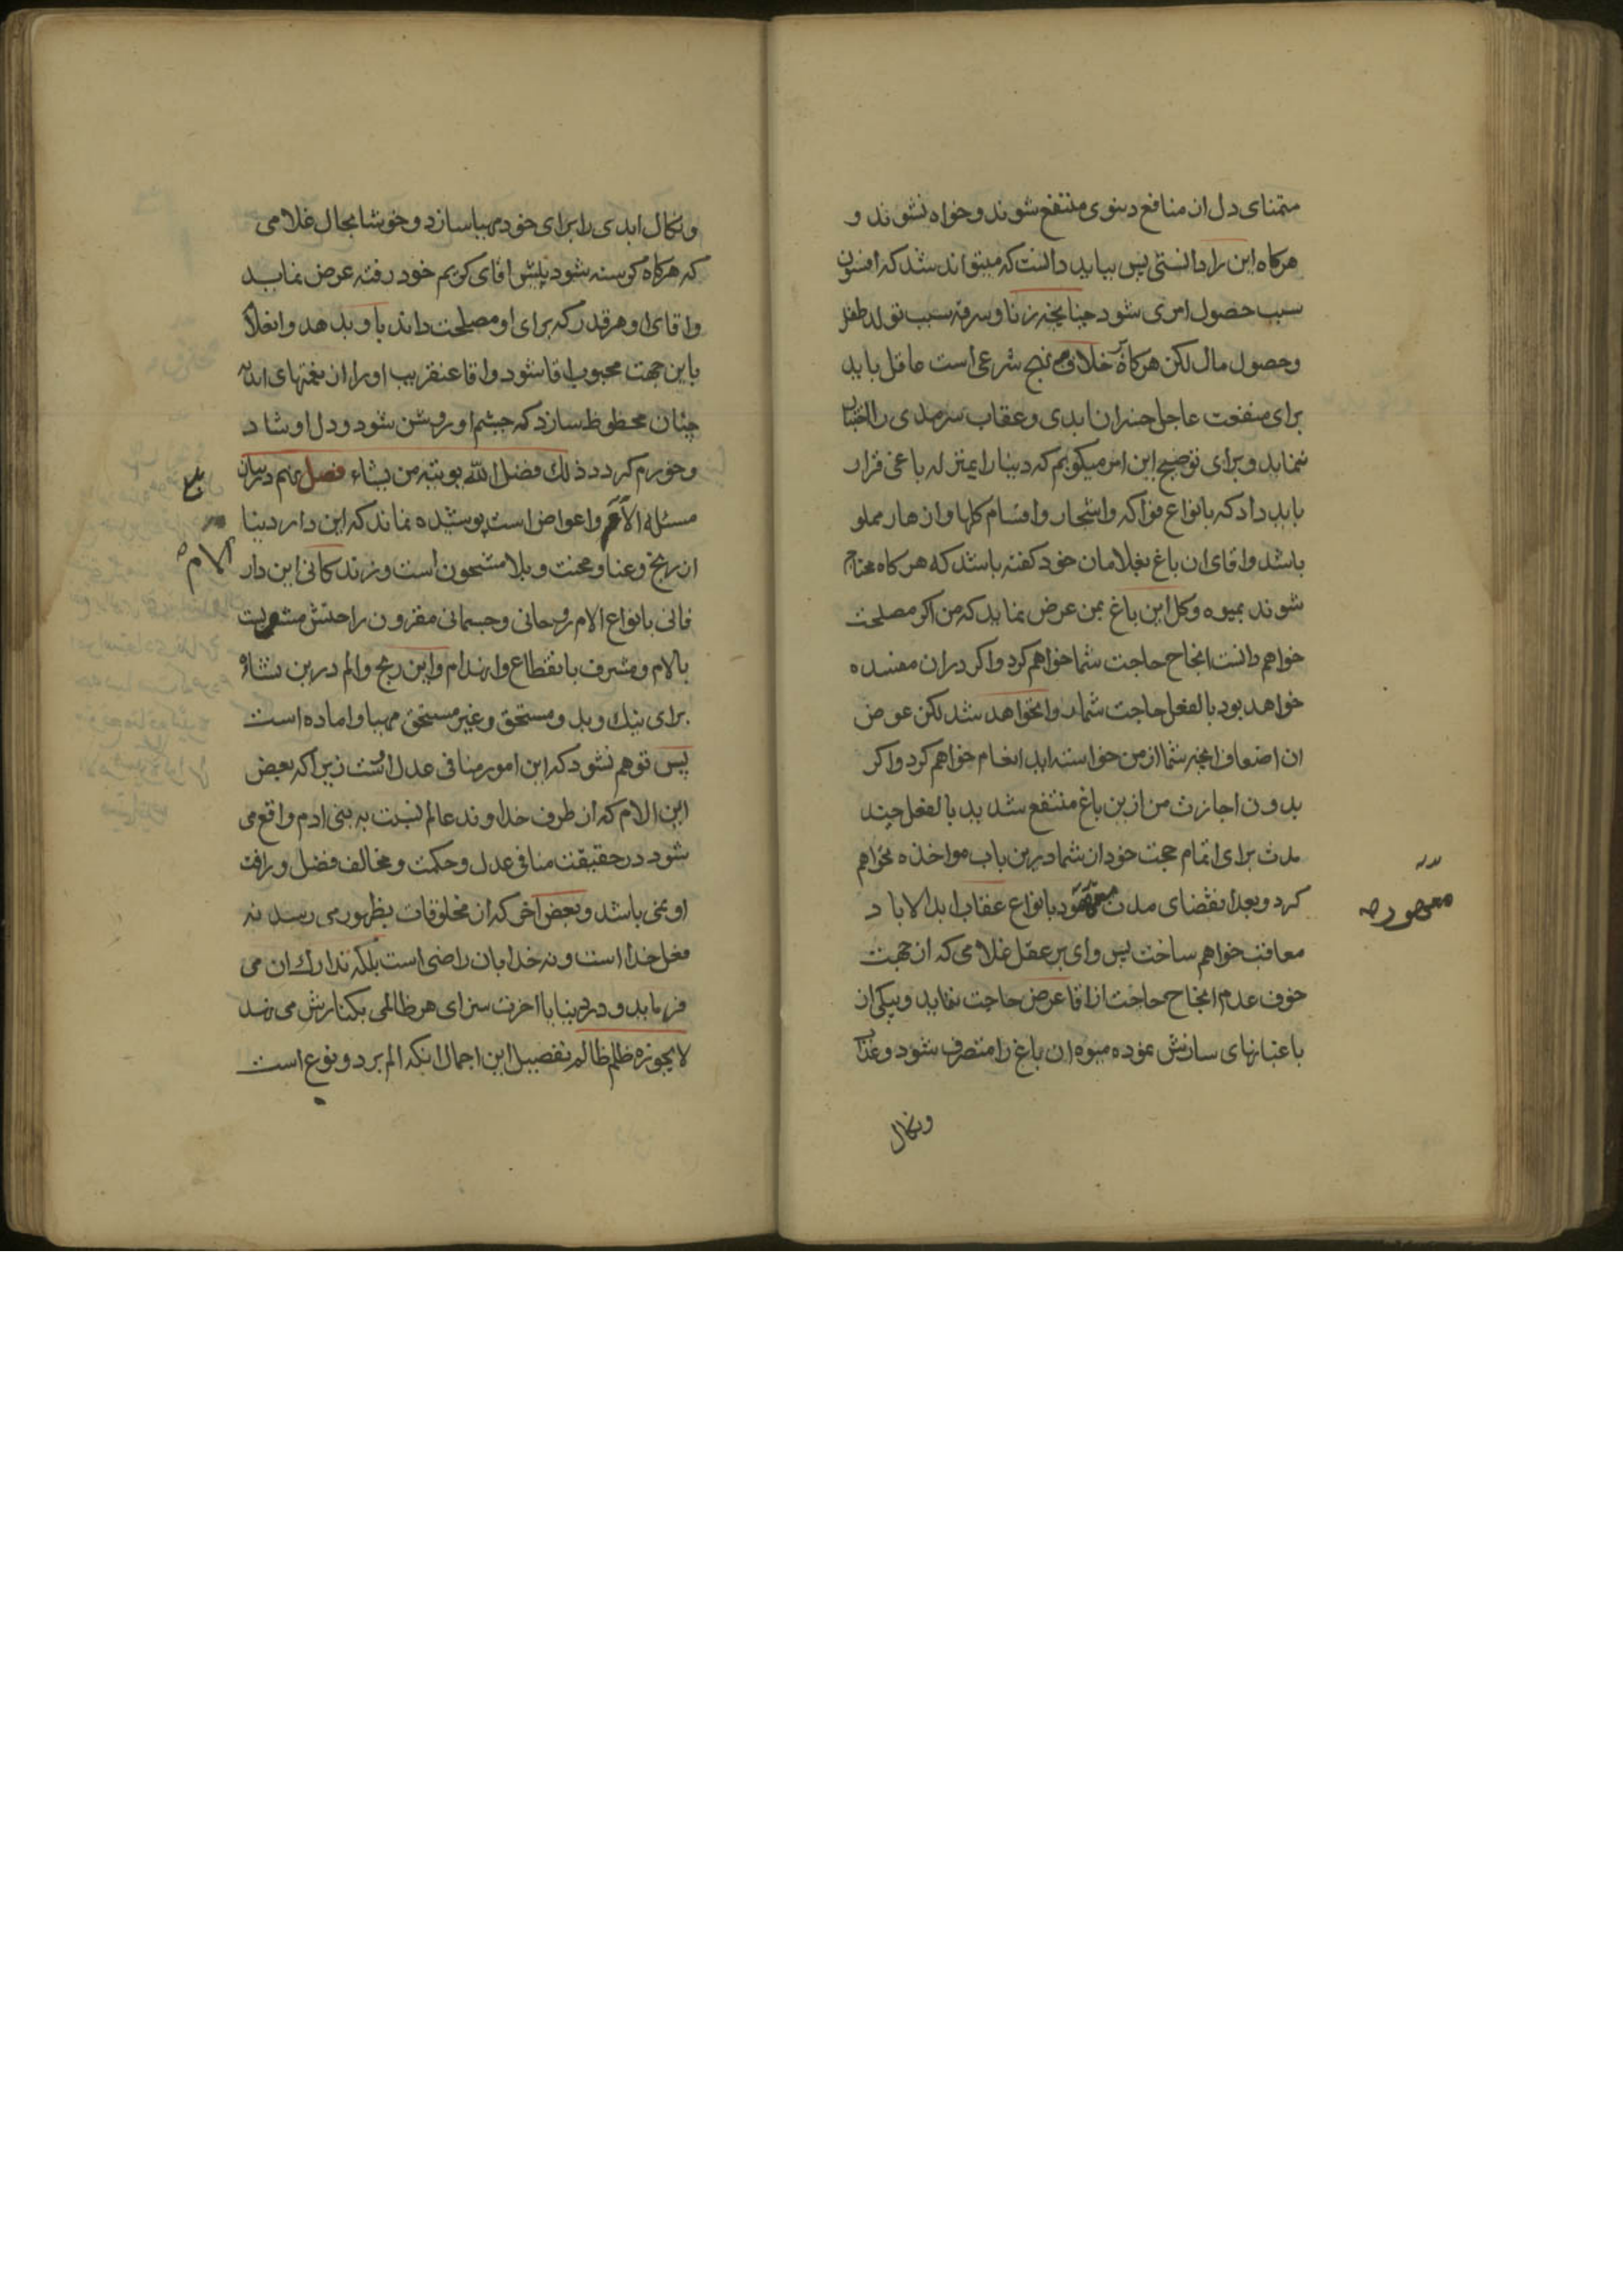 متمنای دل از منافع دنیوی منتفع شوند و خواه نشوند و
هرکاه این را دانستی پس بباید دانست که میتواند شد که افسون
سبب حصول امری شود چنانچه زنا و سرقه سبب تولد طفل
و حصول مال لکن هرکاه بر خلاف نهج شرعی است عاقل باید
برای منفعت عاجل خسران ابدی و عقاب سرمدی را اختیار
ننماید و برای توضیح این امر میکویم که دنیا را بمنزله باغی قرار
باید داد که بانواع فواکه و اشجار و اقسام کلها و انهار مملو
باشد و اقای ان باغ بغلامان خود کفته باشد که هرکاه محتاج
شوند بمیوه و کل این باغ بمن عرض نماید که من اکر مصلحت
خواهم دانست انجاح حاجت شما خواهم کرد و اکر دران مفسده
خواهد بود بالفعل حاجت شما روا نخواهد شد لکن عوض
ان اضعاف انچه شما از من خواسته اید انعام خواهم کرد و اکر
بدون اجازت من ازین باغ منتفع شدید بالفعل چند
مدت برای اتمام حجت خود از شما درین باب مواخذه نخواهم
کرد و بعد انقضای مدت معهود بانواع عقاب ابد الاباد
معاقب خواهم ساخت پس وای بر عقل غلامی که از جهت
خوف عدم انجاح حاجت از اقا عرض حاجت ننماید و بیکی از
باغبانهای سازش نموده میوه ان باغ را متصرف شود و عذاب
ونکال
و نکال ابدی را برای خود مهیا سازد و خوشا بحال غلامی
که هرکاه کرسنه شود پیش اقای کریم خود رفته عرض نماید
و اقای او هر قدر که برای او مصلحت داند باو بدهد و انغلام
باین جهت محبوب اقا شود و اقا عنقریب او را از نعمتهای ابدیه
چنان محظوظ سازد که چشم او روشن شود و دل او شاد
و خورم کردد ذلك فضل الله یوتیه من یشاء فصل نهم در بیان
مسئله الام و اعواض است پوشیده نماند که این دار دنیا
الام
از رنج و عنا و محنت و بلا مشحون است و زندکانی این دار
فانی بانواع الام روحانی و جسمانی مقرون راحتش مشوبست
بالام و مشرف بانقطاع و انهدام و این رنج و الم درین نشاء
برای نیك و بد و مستحق و غیر مستحق مهیا و اماده است
پس توهم نشود که این امور منافی عدل است زیرا که بعض
این الام که از طرف خداوند عالم نسبت به بنی ادم واقع می
شود در حقیقت منافی عدل و حکمت و مخالف فضل و رافت
او نمی باشد و بعض اخر که از مخلوقات بظهور می رسد نه
فعل خدا است و نه خدا بان راضی است بلکه تدارك ان می
فرماید و در دنیا یا اخرت سزای هر ظالمی بکنارش می نهد
لا یجوزه ظلم ظالم تفصیل این اجمال انکه الم بر دو نوع است